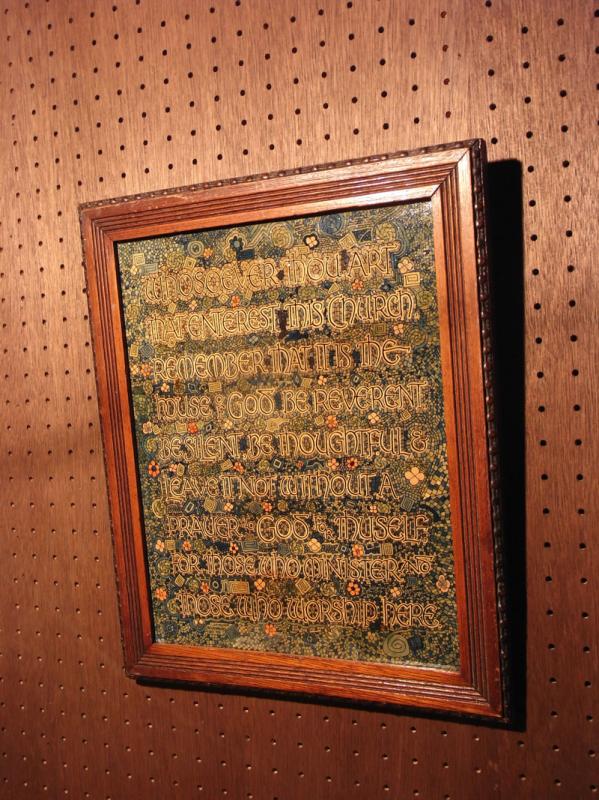 WHOSOEVER THOU ART
THAT ENTEREST THIS CHURCH
REMEMBER THAT IT IS THE
HOUSE OF GOD BE REVERENT
BE SILENT, BE THOUGHTFUL &
LEAVE IT NOT WITHOUT A
PRAYER TO GOD FOR THYSELF
FOR THOSE WHO MINISTER AND
THOSE WHO WORSHIP HERE